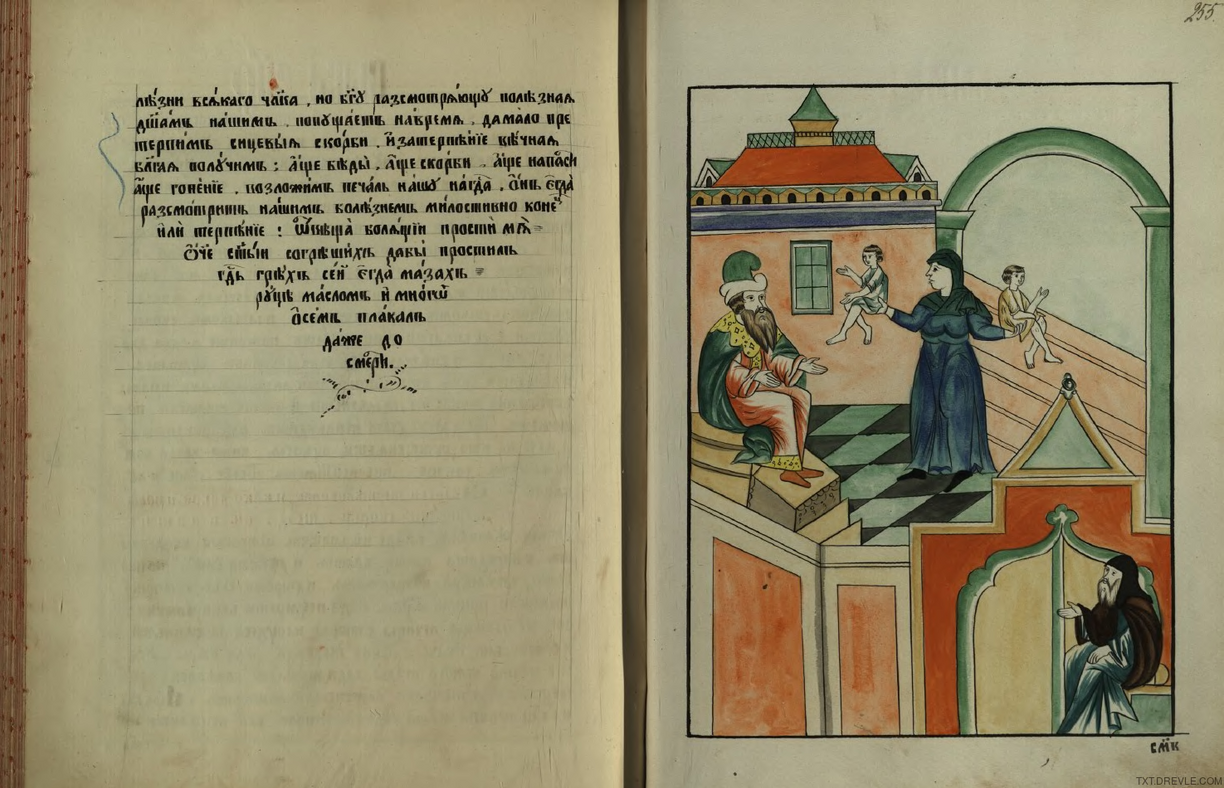 лѣзни всѧ́каго чл҃ка , но бг҃ꙋ разсмотрѧ́ющꙋ поле́знаѧ
дш҃а́мъ нашимъ . попꙋща́етъ навремѧ . да мало пре
терпимъ сицевыѧ ско́рби . и҆ затерпѣ́нїе вѣ́чнаѧ
бл҃га́ѧ полꙋ́чимъ ; а҆́ще бѣды̀ , а҆́ще скорби . а҆́ще напа́сти
а҆́ще гоне́нїе . возложимъ печа́ль нашꙋ на гд҃а . о҆́нъ є҆гда̀
разсмотритъ нашимъ болѣ́знемъ ми́лостивно коне́ц
и҆лѝ терпѣ́нїе : ѿвѣща̀ болѧ́щїи простѝ мѧ̀
ѻ҆́ч҃е ст҃ы́и согрѣши́хъ дабы̀ простилъ
гд҃ь грѣ́хъ се́й є҆гда̀ ма́захъ
рꙋ́цѣ ма́сломъ и҆ мно́гѡ
ѡ҆ се́мъ пла́калъ
да́же до
сме́рти.
255.
см҃к
TXT.DREVLE.COM